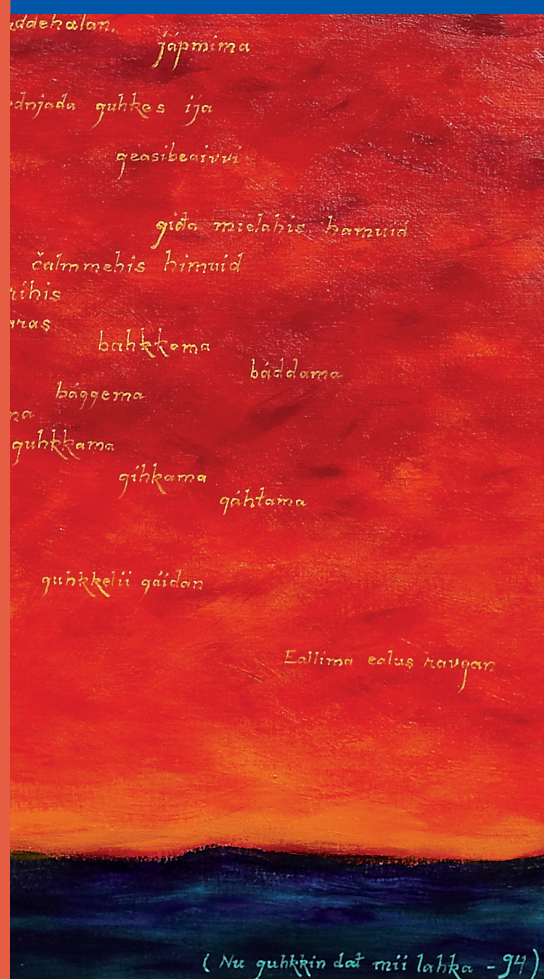 addehalan,
jápmima
dnjada guhkes ija
geasibeaivvi
giđa mielahis hamuid
čalmmehis himuid
rihis
aras
bahkkema
báddama
bággema
na
guhkkama
gihkama
gáhtama
guhkkelii gáidan
Eallima ealus ravgan
( Nu guhkkin dat mii lahka - 94 )